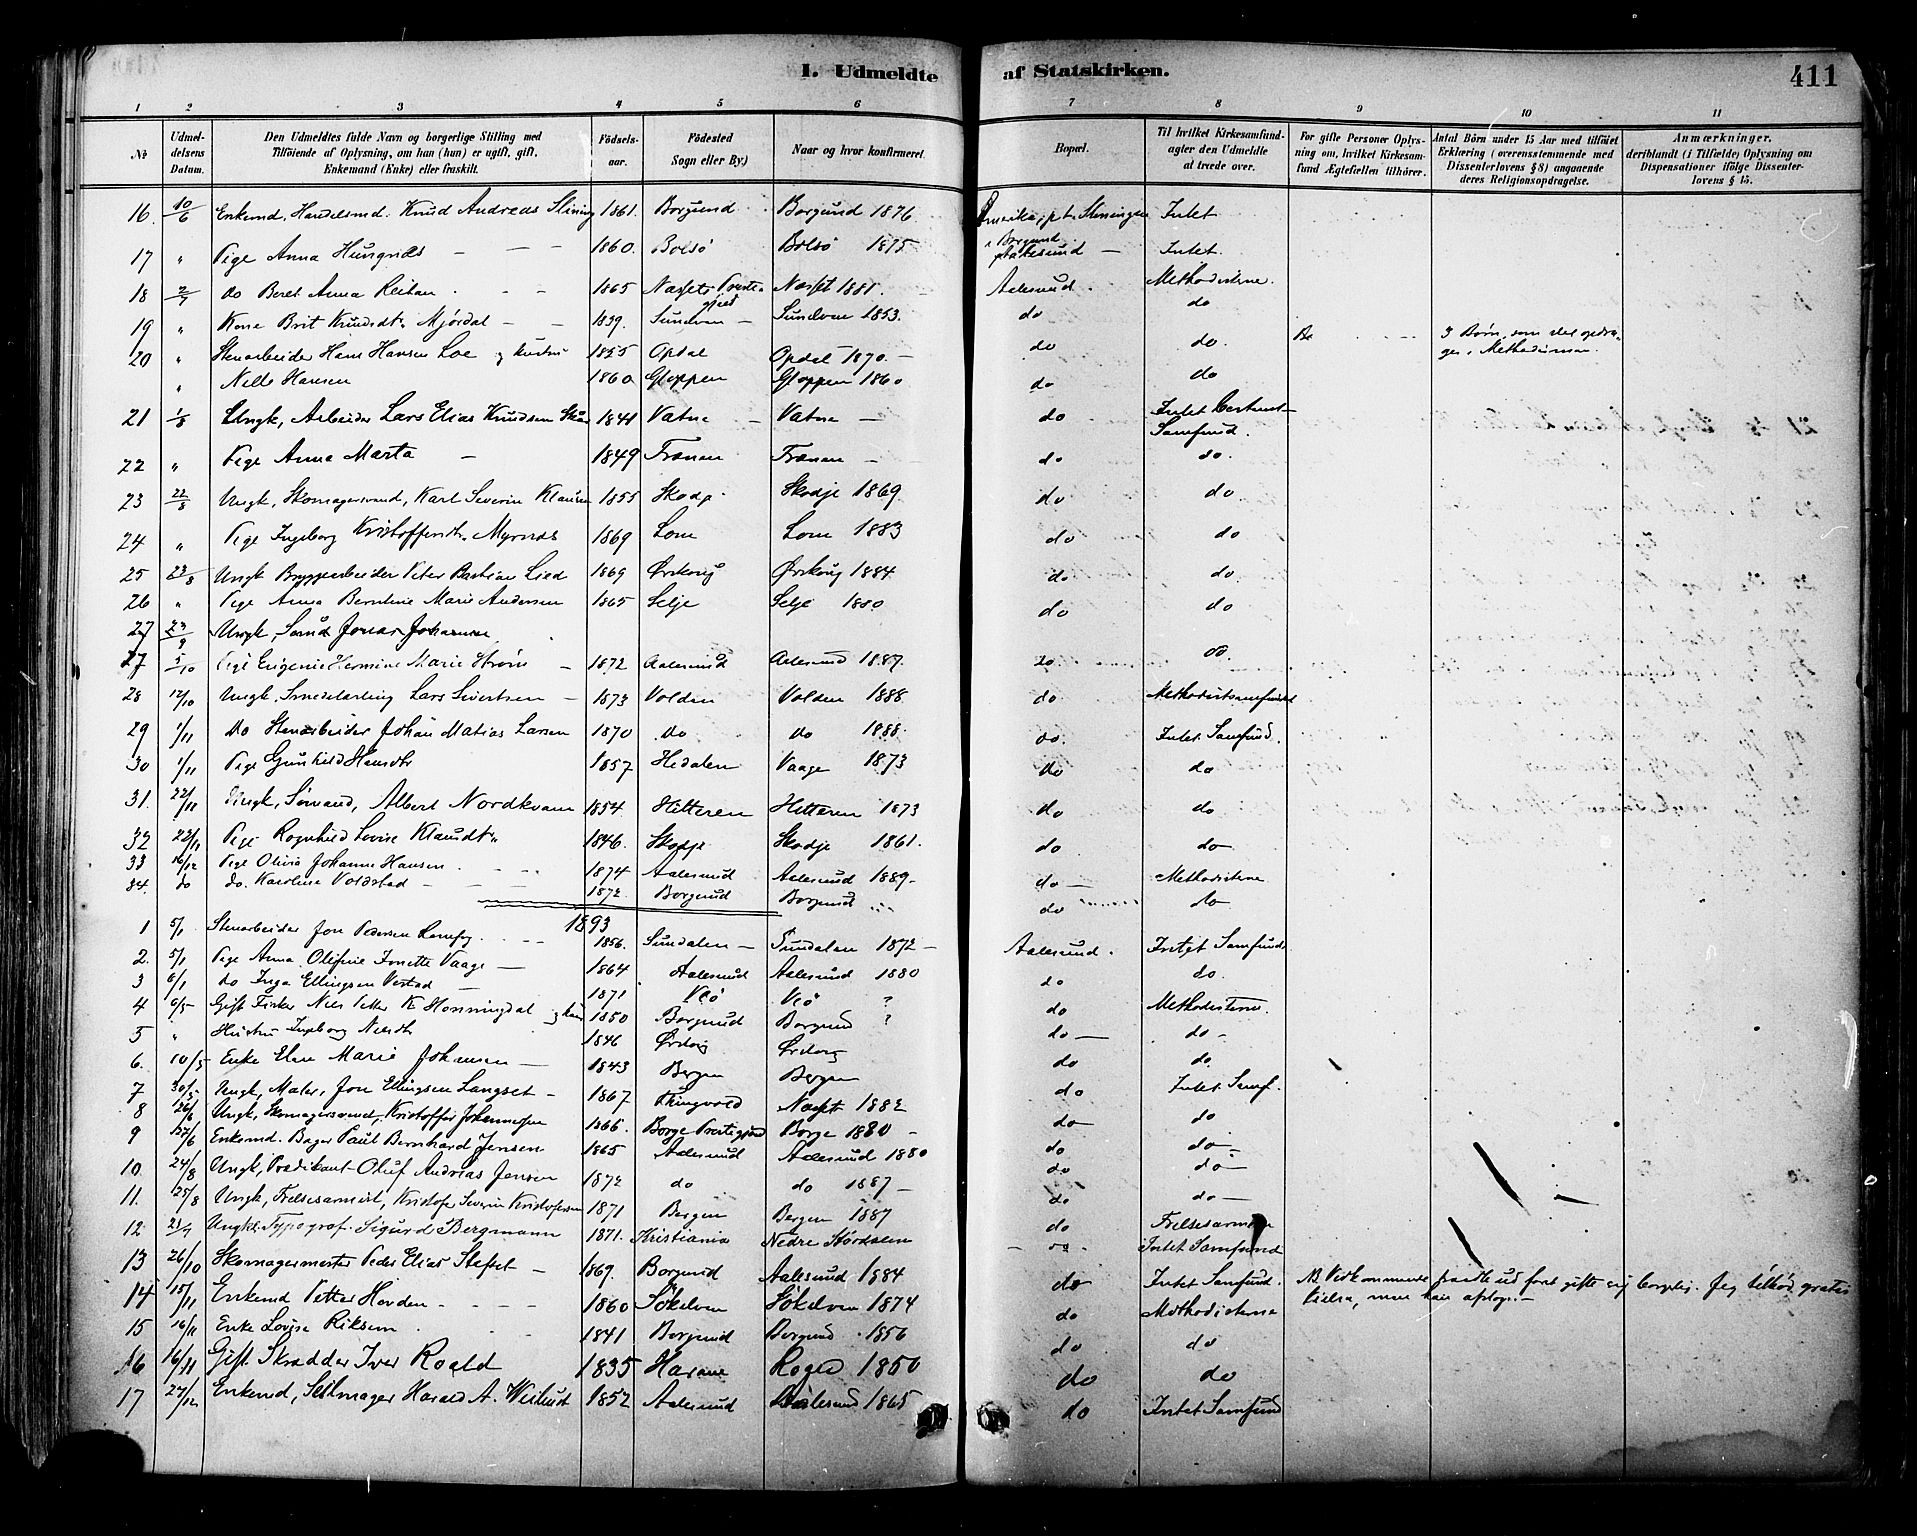 I. Udmeldte af Statskirken. 411
1 2 3 4 5 6 7 8 9 10 11
No
Udmeldelsens Datum.
Den Udmeldtes fulde Navn og borgerlige Stilling med Tilføiende af Oplysning, om han (hun) er ugift, gift, Enkemand (Enke) eller fraskilt.
Fødselsaar.
Fødested Sogn eller By.)
Naar og hvor konfirmeret.
Bopæl.
Til hvilket Kirkesamfund agter den Udmeldte at træde over.
For gifte Personer Oplysning om, hvilket Kirkesamfund Ægtefællen tilhører.
Antal Börn under 15 Aar med tilföiet Erklæring (overensstemmende med Dissenterlovens § 8) angaaende deres Religionsopdragelse.
Anmærkninger, deriblandt (i Tilfælde) Oplysning om Dispensationer ifølge Dissenterlovens § 15.
16. 10/6 Enkemd, Handelsmd. Knud Andreas 1861. Borgund Borgund 1876 Amerika, pt. i Borgund Intet
17 " Pige Anna Hungnæs 1860. Bolsø Bolsø 1875 Intet.
18 2/7 do Beret Anna Reitan 1865 Næssets Præstegjeld Næsset 1881. Aalesund. Methodisterne.
19 " Kone Brit Knudsdtr. Mjørdal 1839. Sundven Sundven 1853. do do
20 " Stenarbeider Hans Hansen Loe og hustru 1855 Opdal Opdal 1870. do do. 3 Børn, som skal opdrages i Methodismen.
" Hansen 1860 Gloppen Gloppen 1860 do do
21 1/8 Ungk, Arbeider Lars Elias Knudsen 1841 Vatne Vatne do Intet bestemt Samfund.
22 " Pige Anna Marta 1849 Frænen Frænen do do.
23 22/8 Ungk, Skomagersvend, Karl Severin 1855 Skodje Skodje 1869. do do
24 " Pige Ingeborg Kristoffersdtr. Myrnæs 1869 Lom Lom 1883 do do
25 23/8 Ungk Bryggearbeider Peter Bastian Lied 1869 Ørskoug Ørskoug 1884 do do.
26 " Pige Anna Berntine Marie Andersen 1865 Selje Selje 1880 do do
27 23/9 Ungk, Jonas Johannsen
27 5/10 Pige Eugenie Hermine Marie Strøm 1872 Aalesund Aalesund 1887. do. do.
28 12/10 Ungk. Smedelærling Lars Sivertsen 1873 Volden Volden 1888 do. Methodistsamfundet
29 1/11 do Stenarbeider Johan Matias Larsen 1870 do do 1888. do. Intet Samfund.
30 1/11 Pige Gunhild Hansdtr 1857 Hedalen Vaage 1873 do do
31. 22/11 Ungk, Sømand, Albert Nordkvam 1854 Hitteren Hitteren 1873 do do
32 22/11 Pige Ragnhild Lovise Klausdtr. 1846. Skodje Skodje 1861. do do
33 16/12 Pige Olivia Johanne Hansen. 1874 Aalesund Aalesund 1889. do Methodisterne
34. do do. Karoline Voldstad 1872 Borgund Borgund do do
1893
1 5/1 Stenarbeider Jon Pedersen 1856. Sundalen Sundalen 1872 Aalesund. Intet Samfund
2. 5/1 Pige Anna Olufine Vaage 1864 Aalesund Aalesund 1880 do do.
3 6/1 do Inga Ellingsen 1871 Veø Veø ? do Methodisterne.
4 6/5 Gift Fisker Nils Petter K Honningdal 1850 Borgund Borgund ? do do
5 " Hustru Ingeborg Nilsdtr 1846 Ørskog Ørskog do do
6. 10/5 Enke Elen Marie Johansen 1843 Bergen Bergen do Intet Samf.
7 30/5 Ungk, Maler, Jon Ellingsen Langset 1867 Thingvold Næsset 1882 do do
8 26/6 Ungk, Skomagersvend, Kristoffer Johannessen 1866. Borge Præstegjeld Borge 1880 do do
9 27/6 Enkemd. Bager Paul Bernhard Jensen 1865 Aalesund Aalesund 1880 do do
10. 24/8 Ungk, Prædikant Oluf Andreas Jensen 1872 do do 1887 do do
11. 25/8 Ungk, Frelsesarmist, Kristofer Severin Kristofersen 1871 Bergen Bergen 1887 do Frelsesarmeen
12 21/9 Ungk. Typograf Sigurd Bergmann 1871. Kristiania Nedre Stördalen do. Intet Samfund
13 26/10 Skomagermester Peder Elias 1869. Borgund Aalesund 1884 do Intet Samfund. NB Vedkommende ud for gifte sig borglig. Jeg tilbød gratis men han afslog.
14 15/11 Enkemd Petter Hovden 1860 Sökelven Sökelven 1874 do Methodisterne
15 16/11 Enke Lovise Riksem 1841 Borgund Borgund 1856 do do
16 16/11 Gift Skrædder Iver Roald 1835 Haram Roald 1850 do do
17 27/12 Enkemd, Seilmager Harald A. 1852 Aalesund Aalesund 1865 do Intet Samfund